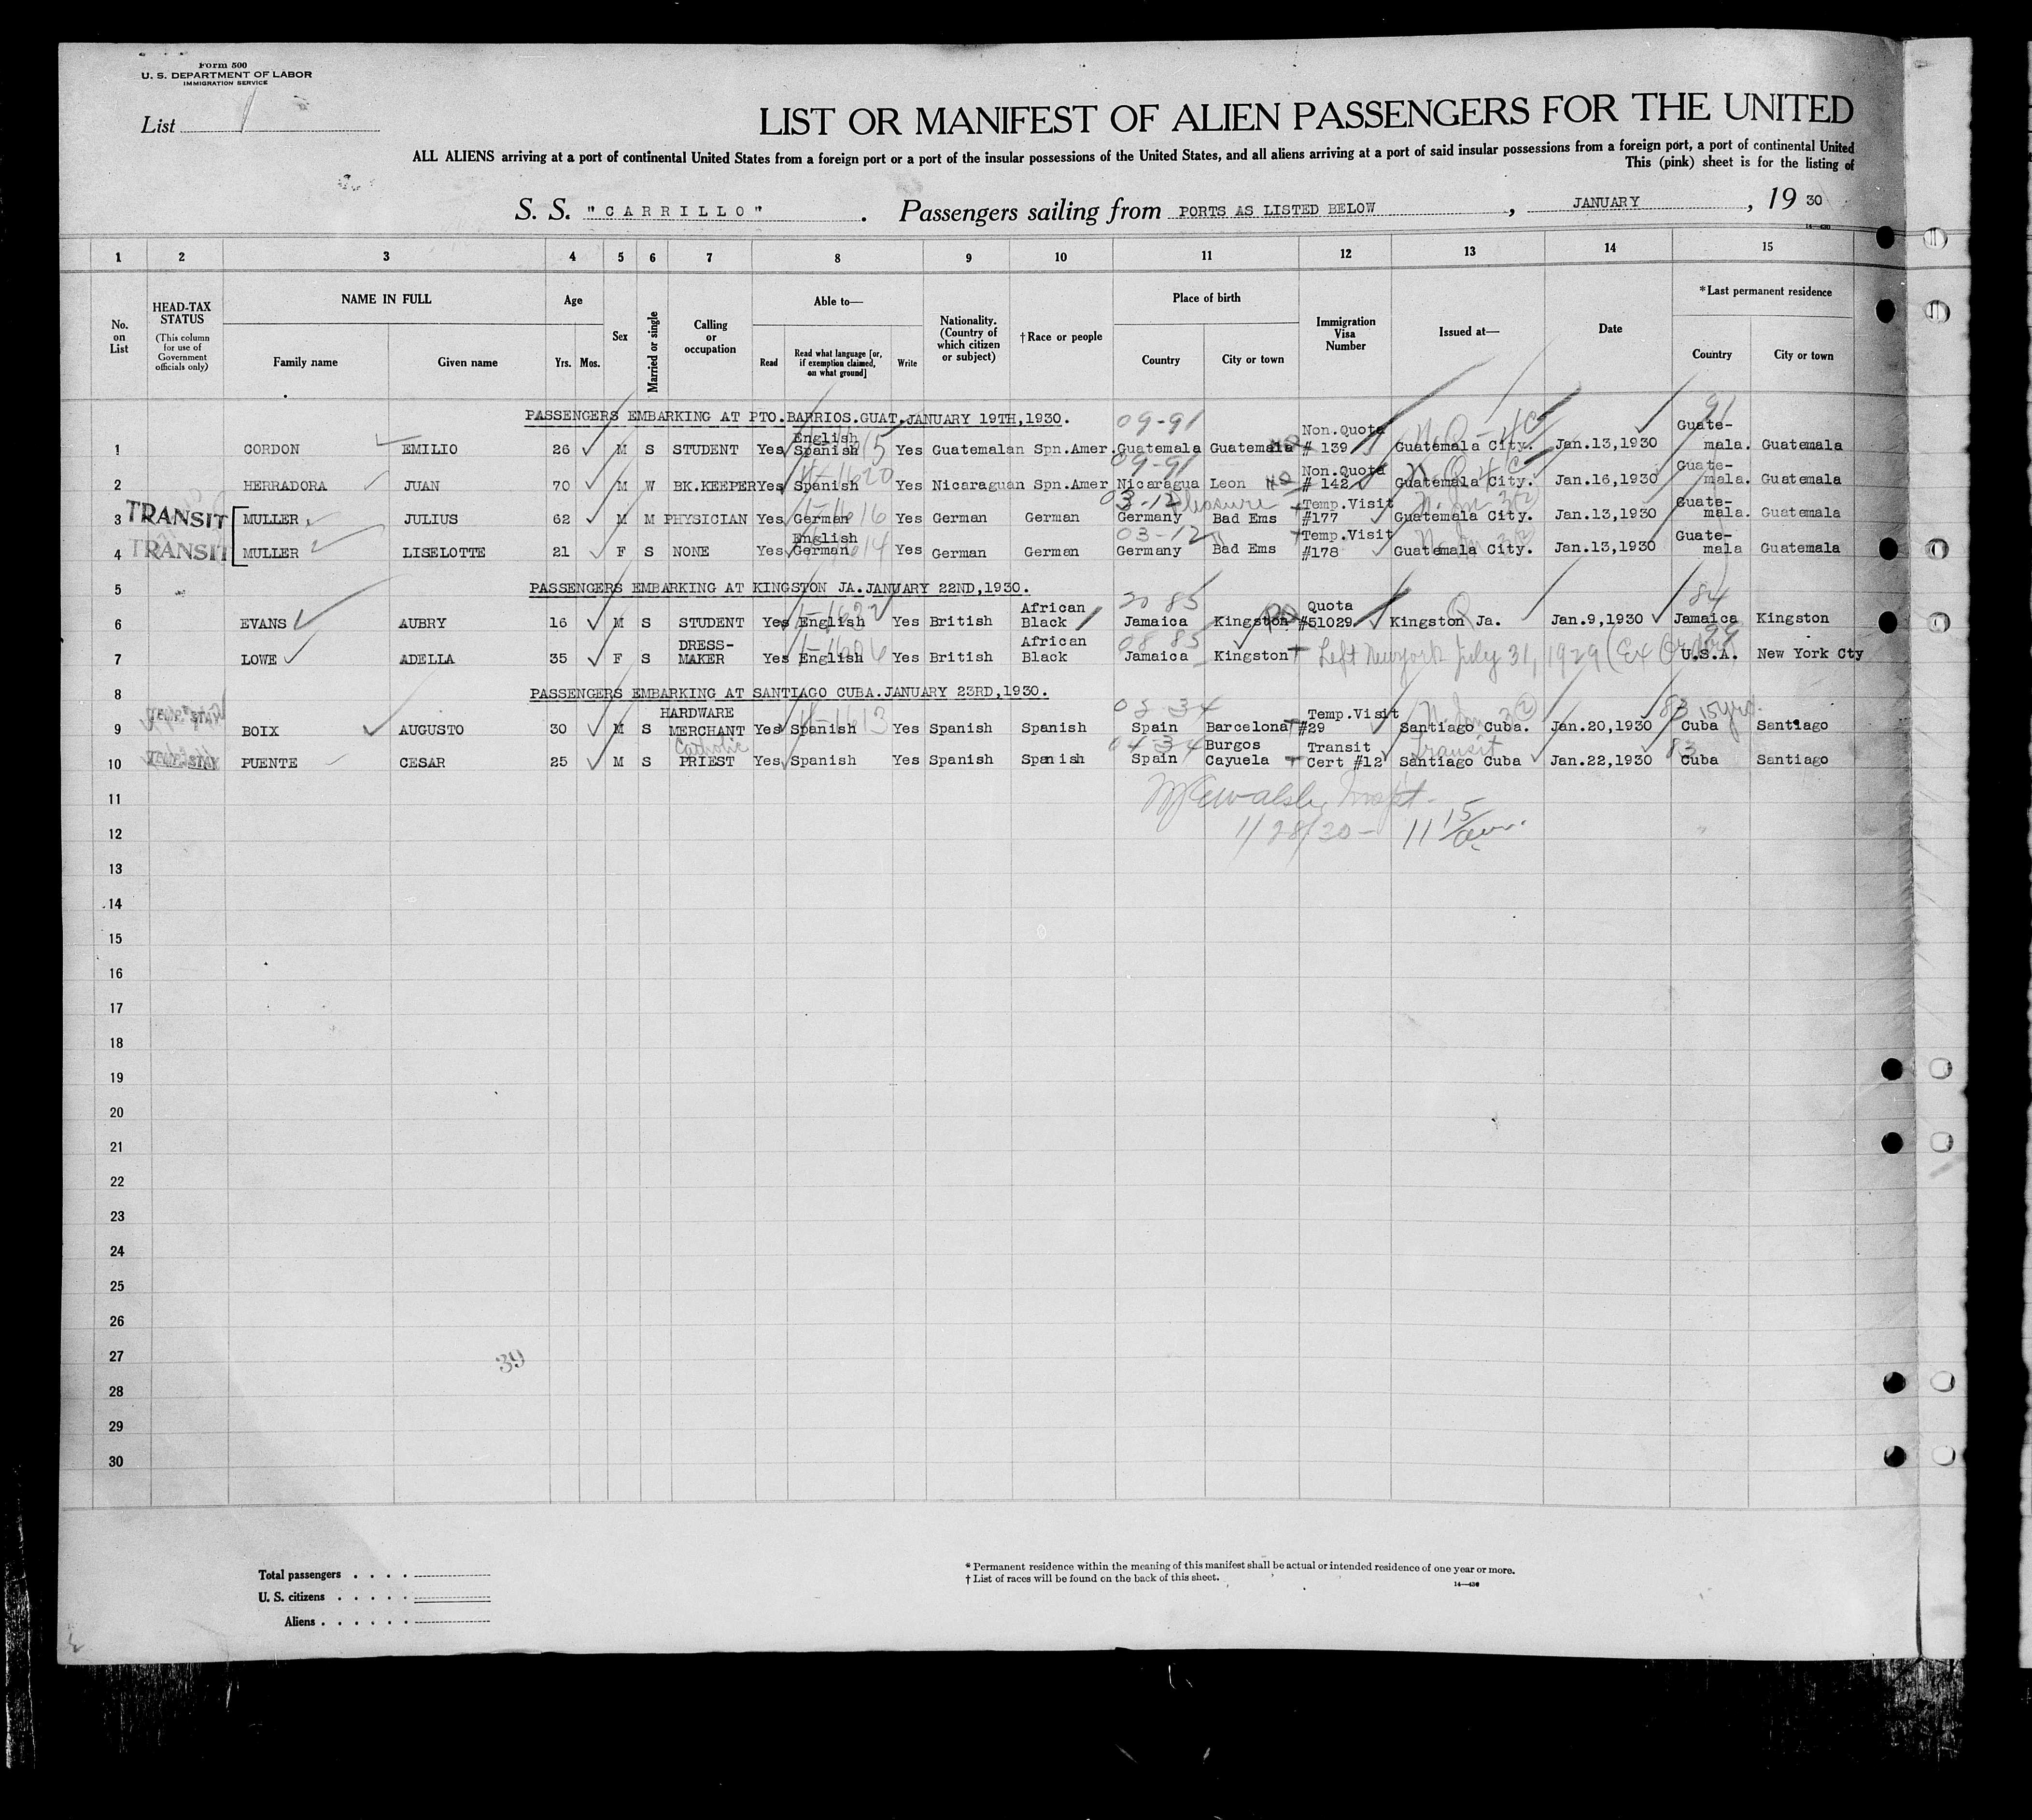 Form 500
U. S. DEPARTMENT OF LABOR
IMMIGRATION SERVICE
List 1
LIST OR MANIFEST OF ALIEN PASSENGERS FOR THE UNITED
ALL ALIENS arriving at a port of continental United States from a foreign port or a port of the insular possessions of the United States, and all aliens arriving at a port of said insular possessions from a foreign port, a port of continental United
This (pink) sheet is for the listing of
S. S. "CARRILLO". Passengers sailing from PORTS AS LISTED BELOW, JANUARY, 19 30
14—430
1 2 3 4 5 6 7 8 9 10 11 12 13 14 15
No. on List
HEAD-TAX STATUS
(This column for use of Government officials only)
NAME IN FULL
Family name Given name
Age
Yrs. Mos.
Sex
Married or single
Calling or occupation
Able to—
Read
Read what language [or, if exemption claimed, on what ground]
Write
Nationality. (Country of which citizen or subject)
† Race or people
Place of birth
Country City or town
Immigration Visa Number
Issued at—
Date
* Last permanent residence
Country City or town
PASSENGERS EMBARKING AT PTO.BARRIOS.GUAT.JANUARY 19TH,1930. 09-91 91
1 CORDON EMILIO 26 M S STUDENT Yes English Spanish Yes Guatemalan Spn.Amer. Guatemala Guatemala Non.Quota # 139 Guatemala City. Jan.13,1930 Guate-mala. Guatemala
09-91
2 HERRADORA JUAN 70 M W BK.KEEPER Yes Spanish Yes Nicaraguan Spn.Amer Nicaragua Leon Non.Quota # 142 Guatemala City. Jan.16,1930 Guate-mala. Guatemala
03-12 Pleasure
TRANSIT 3 MULLER JULIUS 62 M M PHYSICIAN Yes German Yes German German Germany Bad Ems Temp.Visit #177 Guatemala City. Jan.13,1930 Guate-mala. Guatemala
03-12
TRANSIT 4 MULLER LISELOTTE 21 F S NONE Yes English German Yes German German Germany Bad Ems Temp.Visit #178 Guatemala City. Jan.13,1930 Guate-mala Guatemala
5 PASSENGERS EMBARKING AT KINGSTON JA.JANUARY 22ND,1930.
84
6 EVANS AUBRY 16 M S STUDENT Yes English Yes British African Black Jamaica Kingston Quota #51029 Q Kingston Ja. Jan.9,1930 Jamaica Kingston
08 85
7 LOWE ADELLA 35 F S DRESS-MAKER Yes English Yes British African Black Jamaica Kingston Left New York July 31, 1929 U.S.A. New York Cty
8 PASSENGERS EMBARKING AT SANTIAGO CUBA.JANUARY 23RD,1930.
83 15 yrs.
9 BOIX AUGUSTO 30 M S HARDWARE MERCHANT Yes Spanish Yes Spanish Spanish Spain Barcelona Temp.Visit #29 Santiago Cuba. Jan.20,1930 Cuba Santiago
04-34 83
10 PUENTE CESAR 25 M S Catholic PRIEST Yes Spanish Yes Spanish Spanish Spain Burgos Cayuela Transit Cert #12 Transit Santiago Cuba Jan.22,1930 Cuba Santiago
11
12 1/28/30 - 11 15/am.
13
14
15
16
17
18
19
20
21
22
23
24
25
26
27
39
28
29
30
Total passengers
U. S. citizens
Aliens
* Permanent residence within the meaning of this manifest shall be actual or intended residence of one year or more.
† List of races will be found on the back of this sheet.
14—430